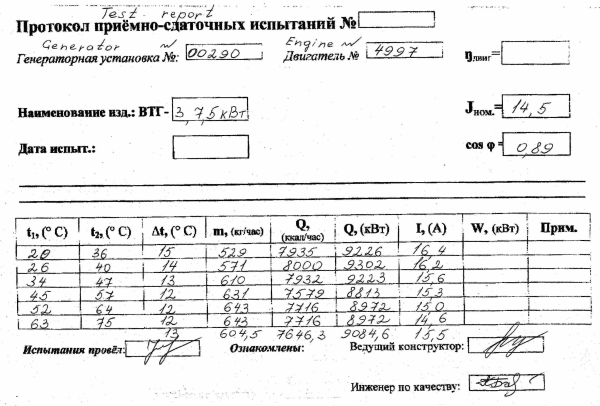 Test report
Протокол приёмно-сдаточных испытаний №
Generator № Engine №
Генераторная установка №: 00290 Двигатель № 4997 ηдвиг=
Наименование изд.: ВТГ- 3, 7,5кВт Jном.= 14,5
Дата испыт.: cos φ = 0,89
t₁, (° С) t₂, (° С) Δt, (° С) m, (кг/час) Q, (ккал/час) Q, (кВт) I, (А) W, (кВт) Прим.
20 36 15 529 7935 9226 16,4
26 40 14 571 8000 9302 16,2
34 47 13 610 7932 9223 15,6
45 57 12 631 7579 8813 15,3
52 64 12 643 7716 8972 15,0
63 75 12 643 7716 8972 14,6
13 604,5 7646,3 9084,6 15,5
Испытания провёл: Ознакомлены: Ведущий конструктор:
Инженер по качеству: